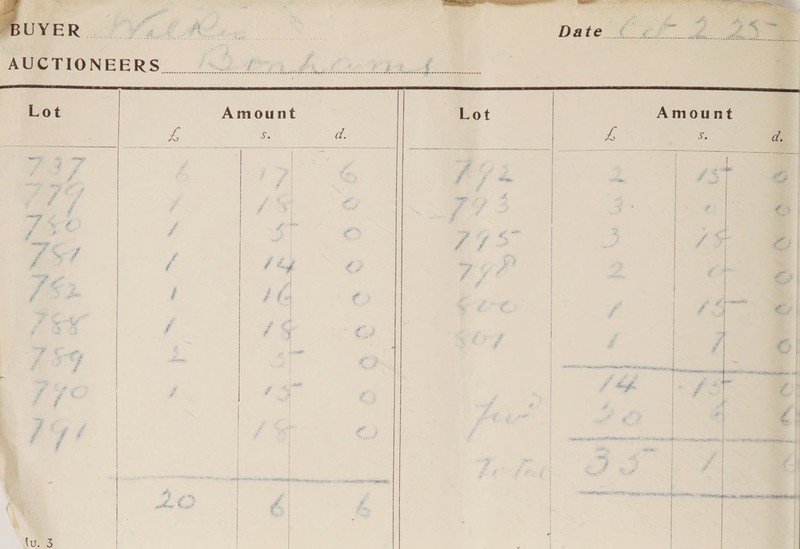 BUYER Date Oct 2 25
AUCTIONEERS Bonhams
Lot Amount
£ s. d.
737 6 17 6
779 1 18 0
780 1 5 0
781 1 14 0
782 1 16 0
788 1 18 0
789 2 5 0
790 1 15 0
791 18 0
20 6 6
Lot Amount
£ s. d.
792 2 15 0
793 3 0 0
795 3 18 0
798 2 0 0
800 1 15 0
801 1 7 0
14 15 0
fwd 20 6 6
Total 35 1 6